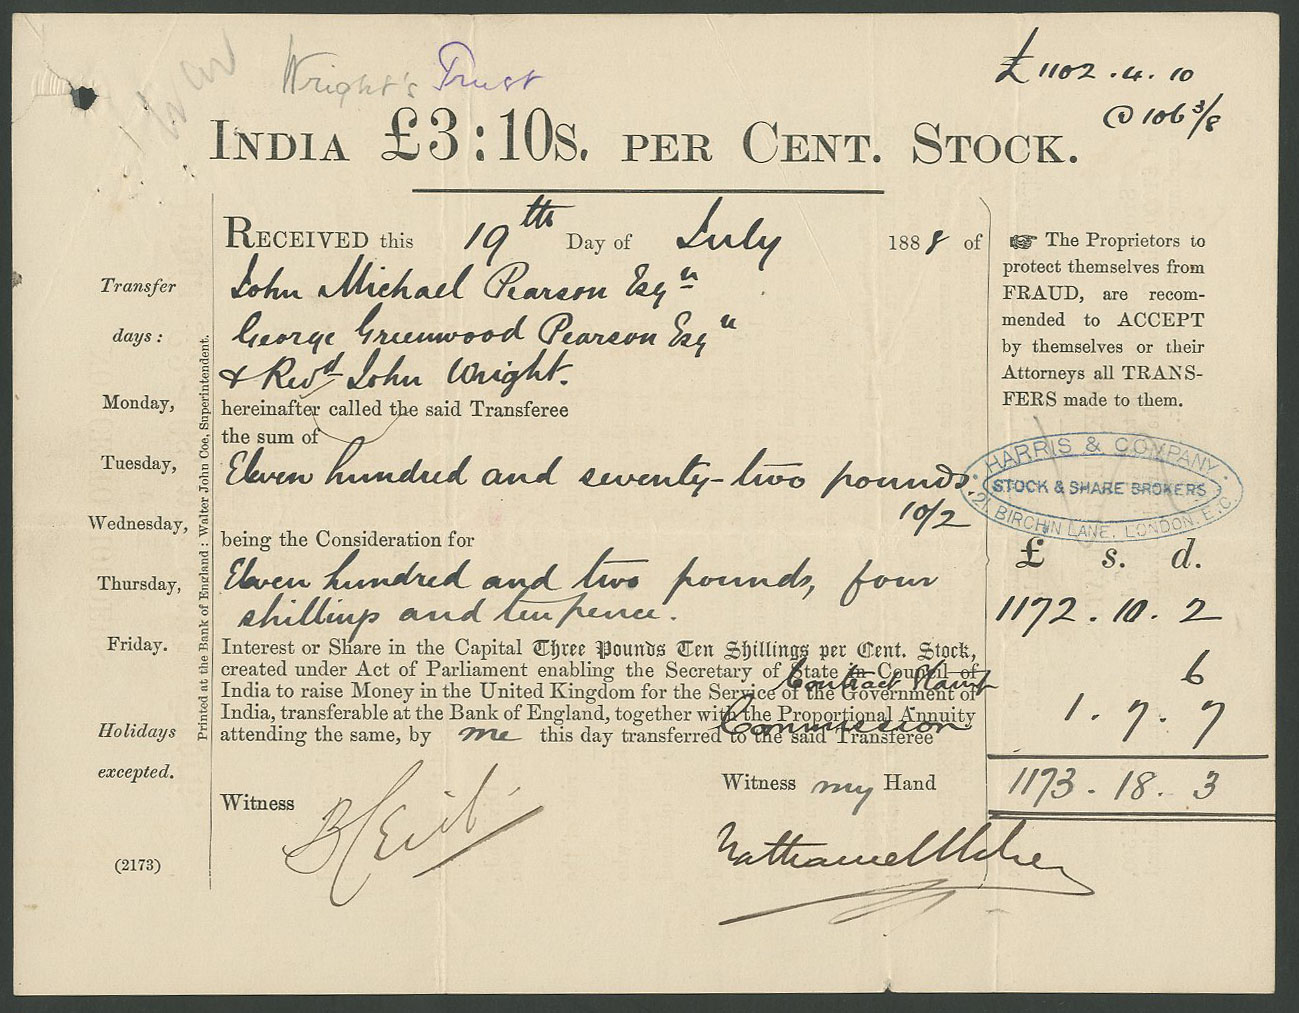 Wright's Trust
£1102.4.10
@ 106 3/8
INDIA £3:10s. PER CENT. STOCK.
RECEIVED this 19th Day of July 1888 of
John Michael Pearson Esqre
George Greenwood Pearson Esqre
& Revd John Wright.
hereinafter called the said Transferee
the sum of
Eleven hundred and seventy-two pounds
10/2
being the Consideration for
Eleven hundred and two pounds, four
shillings and tenpence.
Interest or Share in the Capital Three Pounds Ten Shillings per Cent. Stock,
created under Act of Parliament enabling the Secretary of State in Council of
India to raise Money in the United Kingdom for the Service of the Government of
India, transferable at the Bank of England, together with the Proportional Annuity
attending the same, by me this day transferred to the said Transferee
Witness
Witness my Hand
Transfer
days:
Monday,
Tuesday,
Wednesday,
Thursday,
Friday.
Holidays
excepted.
(2173)
Printed at the Bank of England: Walter John Coe, Superintendent.
☞ The Proprietors to
protect themselves from
FRAUD, are recom-
mended to ACCEPT
by themselves or their
Attorneys all TRANS-
FERS made to them.
HARRIS & COMPANY
STOCK & SHARE BROKERS
21, BIRCHIN LANE, LONDON. E.C.
£ s. d.
1172.10.2
Contract Stamp 6
Commission 1.7.7
1173.18.3